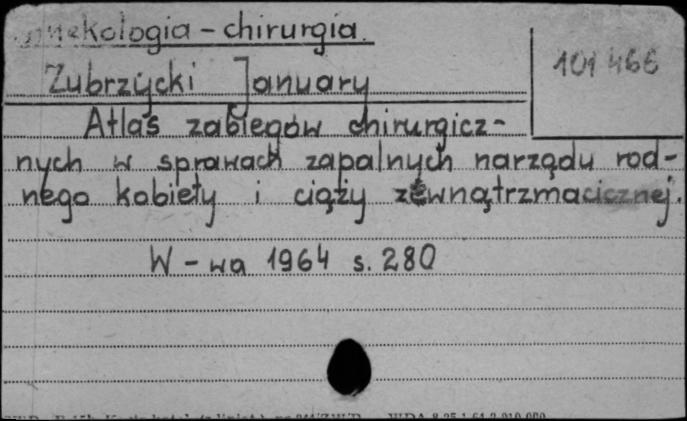 Ginekologia - chirurgia.
101 466
Zubrzycki January
Atlas zabiegów chirurgicz-
nych w sprawach zapalnych narządu rod-
nego kobiety i ciąży zewnątrzmacicznej.
W-wa 1964 s. 280